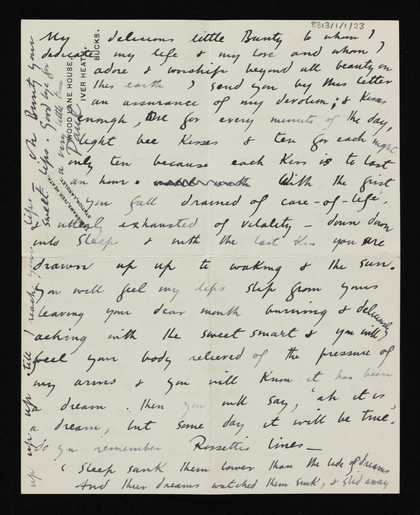 8313/1/1/23
WOOD LANE HOUSE,
IVER HEATH,
BUCKS.
My delicious little Bunty to whom I
dedicate my life & my love and whom I
adore & worship beyond all beauty on
this earth I send you by this letter
an assurance of my devotion, & kisses
enough, One for every minute of the day,
light bee kisses & ten for each night
only ten because each kiss is to last
an hour. With the first
you fall drained of care-of-life,
utterly exhausted of vitality – down down
into sleep & with the last kiss you are
drawn up up to waking & the sun.
You will feel my lips slip from yours
leaving your dear mouth burning & deliciously
aching with the sweet smart & you will
feel your body relieved of the pressure of
my arms & you will know it has been
a dream. Then you will say, 'ah it is
a dream, but some day it will be true.'
do you remember Rossettis lines –
'Sleep sank them lower than the tide of dreams
And their dreams watched them sink, & slid away
up up up till I reach your lips. Oh Bunty your
sweet lips. Good bye for
a very little